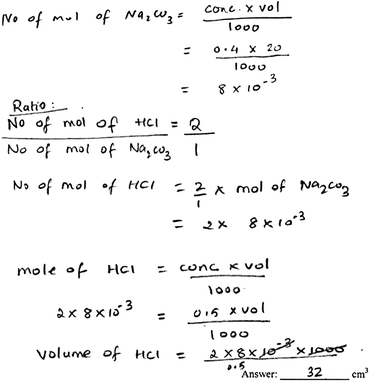 No of mol of Na2CO3 = conc. x vol
1000
= 0.4 x 20
1000
= 8 x 10^-3
Ratio:
No of mol of HCl = 2
No of mol of Na2CO3 1
No of mol of HCl = 2/1 x mol of Na2CO3
= 2 x 8 x 10^-3
mole of HCl = conc x vol
1000
2 x 8 x 10^-3 = 0.5 x vol
1000
Volume of HCl = 2 x 8 x 10^-3 x 1000
0.5
Answer: 32 cm³